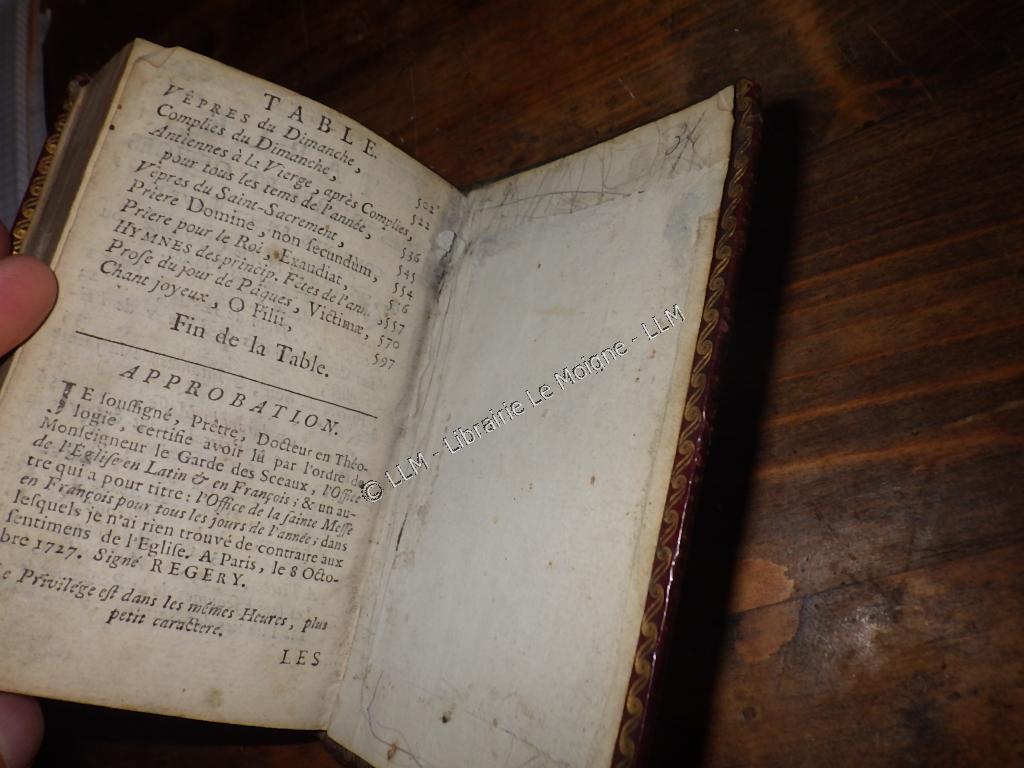 TABLE.
VÊPRES du Dimanche, 502
Complies du Dimanche, 522
Antiennes à la Vierge, après Complies,
pour tous les tems de l'année, 536
Vêpres du Saint-Sacrement, 545
Priere Dominé, non secundùm, 554
Priere pour le Roi, Exaudiat, 556
HYMNES des princip. Fêtes de l'an. , 557
Prose du jour de Pâques, Victimæ, 570
Chant joyeux, O Filii, 597
Fin de la Table.
APPROBATION.
JE soussigné, Prêtre, Docteur en Théo-
logie, certifie avoir lû par l'ordre de
Monseigneur le Garde des Sceaux, l'Office
de l'Eglise en Latin & en François; & un au-
tre qui a pour titre: l'Office de la sainte Messe
en François pour tous les jours de l'année; dans
lesquels je n'ai rien trouvé de contraire aux
sentimens de l'Eglise. A Paris, le 8 Octo-
bre 1727. Signé REGERY.
Le Privilége est dans les mêmes Heures, plus
petit caractere.
LES
© LLM - Librairie Le Moigne - LLM